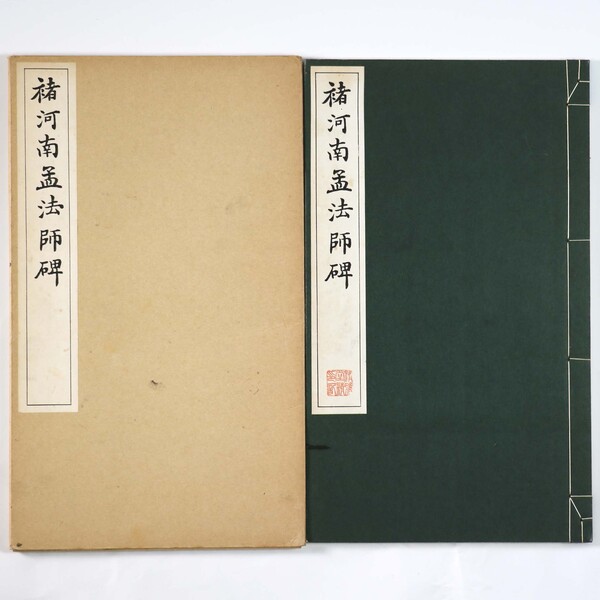 褚河南孟法師碑
褚河南孟法師碑